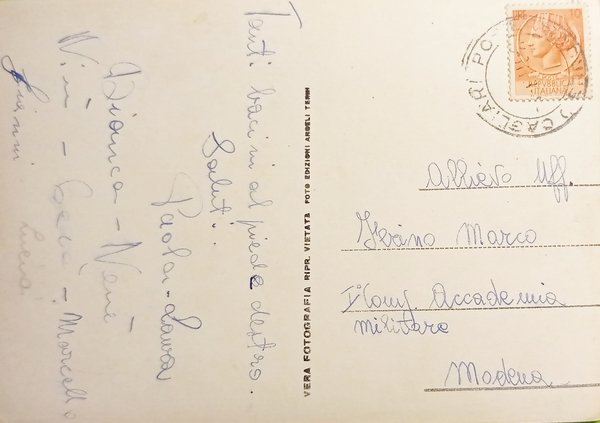 Tanti bacini al piede destro.
Saluti.
Paola - Laura
Bianca - Nenè -
Ninì - Cecè - Marcello
Gianni Lucia
VERA FOTOGRAFIA RIPR. VIETATA FOTO EDIZIONI ARGELI TERNI
LIRE 10
REPUBBLICA
ITALIANA
CAGLIARI PO
Allievo Uff.
Marco
Accademia
militare
Modena